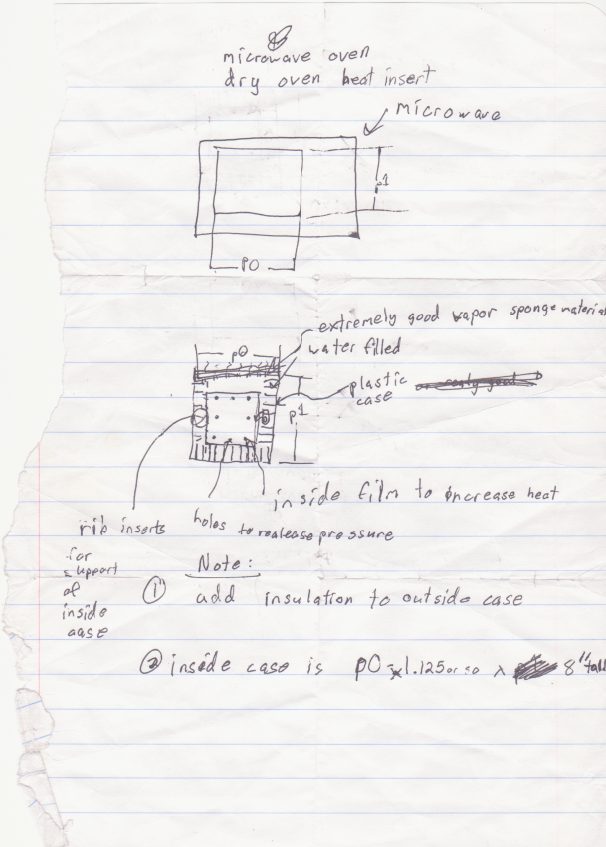 microwave oven
dry oven heat insert
microwave
p1
p0
extremely good vapor sponge material
p0
water filled
plastic
case
p1
inside film to increase heat
rib inserts
holes to realease pressure
for
support
of
inside
case
Note:
① add insulation to outside case
② inside case is p0 x 1.125 or so x 8" tall